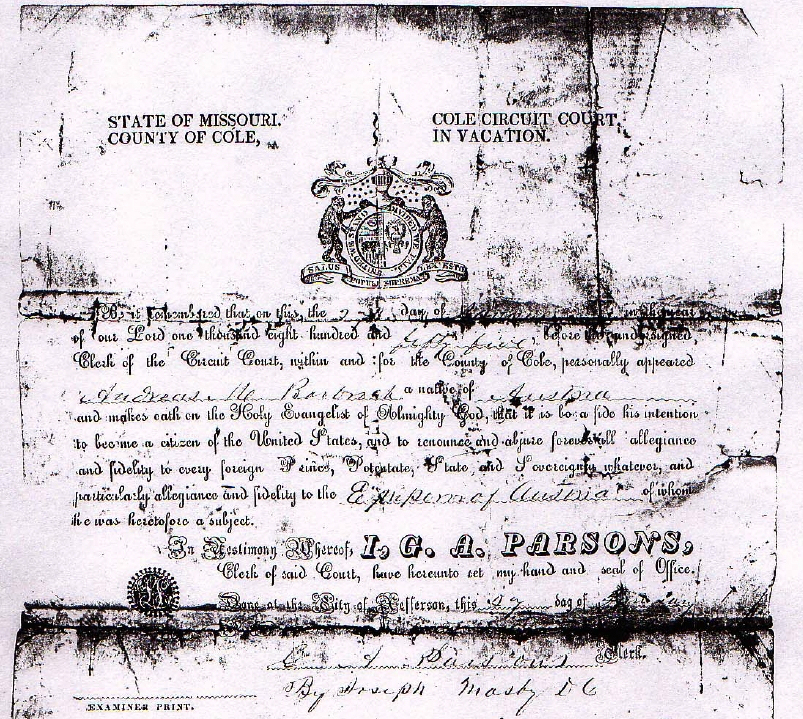 STATE OF MISSOURI.
COUNTY OF COLE,
COLE CIRCUIT COURT,
IN VACATION.
SALUS POPULI SUPREMA LEX ESTO
Be it remembered that on this, the day of in the year
of our Lord one thousand eight hundred and fifty five, before the undersigned
Clerk of the Circuit Court, within and for the County of Cole, personally appeared
Andreas a native of Austria
and makes oath on the Holy Evangelist of Almighty God, that it is bona fide his intention
to become a citizen of the United States, and to renounce and abjure forever all allegiance
and fidelity to every foreign Prince, Potentate, State, and Sovereignty whatever, and
particularly allegiance and fidelity to the Emperor of Austria of whom
he was heretofore a subject.
In Testimony Whereof, I, G. A. PARSONS,
Clerk of said Court, have hereunto set my hand and seal of Office.
Done at the City of Jefferson, this day of
Parsons Clerk.
By Joseph Mosby DC
EXAMINER PRINT.